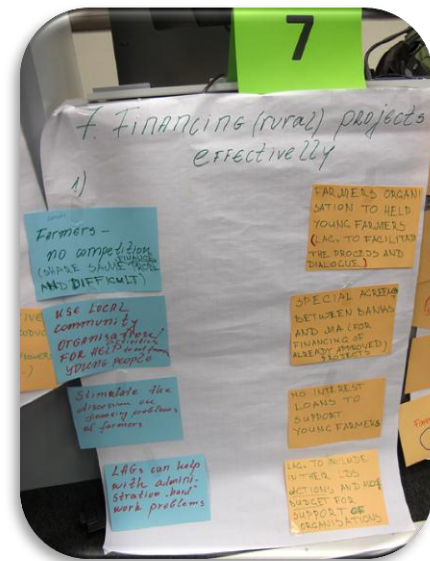 7
7. FINANCING (rural) projects
effectively
1)
Farmers –
no competition
(SHARE SAME
AND DIFFICULT)
USE LOCAL
community
FOR HELP
YOUNG PEOPLE
Stimulate the
discussion on
problems
of farmers
LAGs can help
with admini-
stration "hard"
work problems
FARMERS ORGANI
SATION TO HELD
YOUNG FARMERS
(LAGs TO FACILITATE
THE PROCESS AND
DIALOGUE)
SPECIAL
BETWEEN BANKS
AND MA (FOR
FINANCING OF
ALREADY APPROVED)
PROJECTS
NO INTEREST
LOANS TO
SUPPORT
YOUNG FARMERS
LAGs TO INCLUDE
IN THEIR LDS
ACTIONS AND MORE
BUDGET FOR
SUPPORT OF
ORGANISATIONS